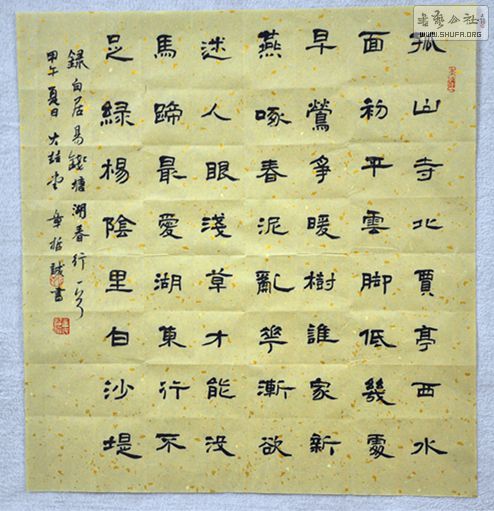 孤山寺北賈亭西水
面初平雲脚低幾處
早鶯爭暖樹誰家新
燕啄春泥亂華漸欲
迷人眼淺草才能没
馬蹄最愛湖東行不
足緑楊陰里白沙堤
録白居易錢塘湖春行一首
甲午夏日 大堂 章誠書
書藝公社
WWW.SHUFA.ORG